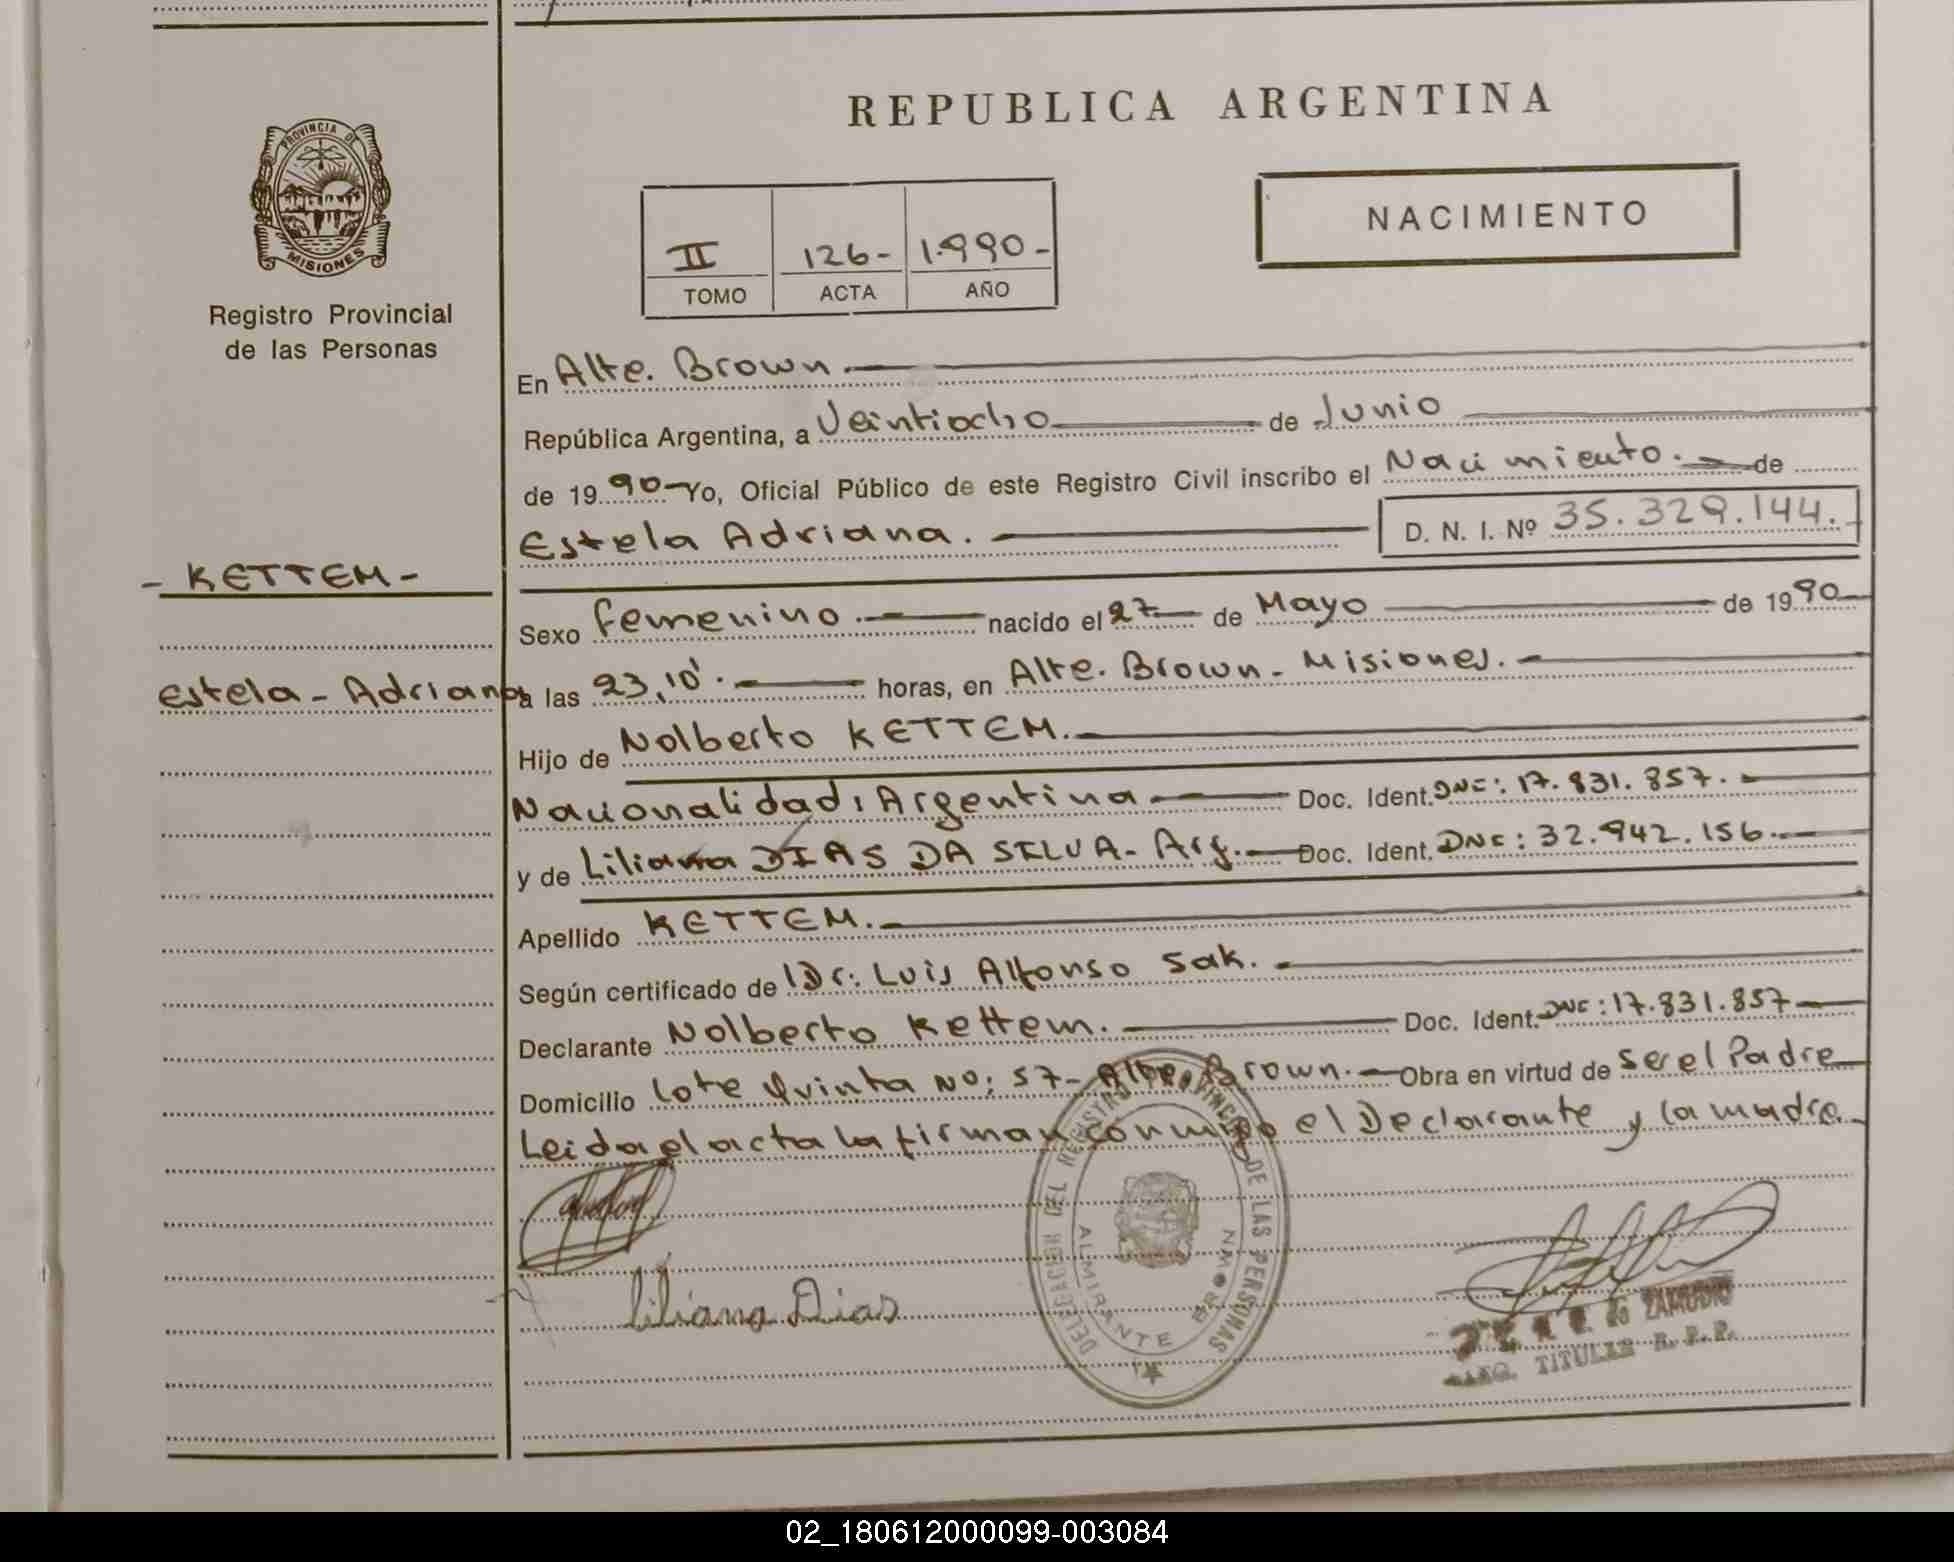 REPUBLICA ARGENTINA
PROVINCIA DE
MISIONES
Registro Provincial
de las Personas
NACIMIENTO
II 126- 1.990-
TOMO ACTA AÑO
En Alte. Brown.
República Argentina, a Veintiocho de Junio
de 1990 Yo, Oficial Público de este Registro Civil inscribo el Nacimiento. de
Estela Adriana. D. N. I. Nº 35.329.144.
- KETTEM -
Sexo femenino. nacido el 27 de Mayo de 1990
Estela - Adriana
a las 23,10'. horas, en Alte. Brown - Misiones.
Hijo de Nolberto KETTEM.
Nacionalidad: Argentina Doc. Ident. DNI: 17.831.857.
y de Liliana DIAS DA SILVA - Arg. Doc. Ident. DNI: 32.942.156.
Apellido KETTEM.
Según certificado de Dr: Luis Alfonso Sak.
Declarante Nolberto Kettem. Doc. Ident. DNI: 17.831.857
Domicilio Lote Quinta Nº: 57 - Alte. Brown. Obra en virtud de ser el Padre
Leida el acta la firman conmigo el Declarante y la madre.
DELEGACION DEL REGISTRO PROVINCIAL DE LAS PERSONAS
ALMIRANTE BROWN
Liliana Dias
de ZAMUDIO
TITULAR R. P. P.
02_180612000099-003084